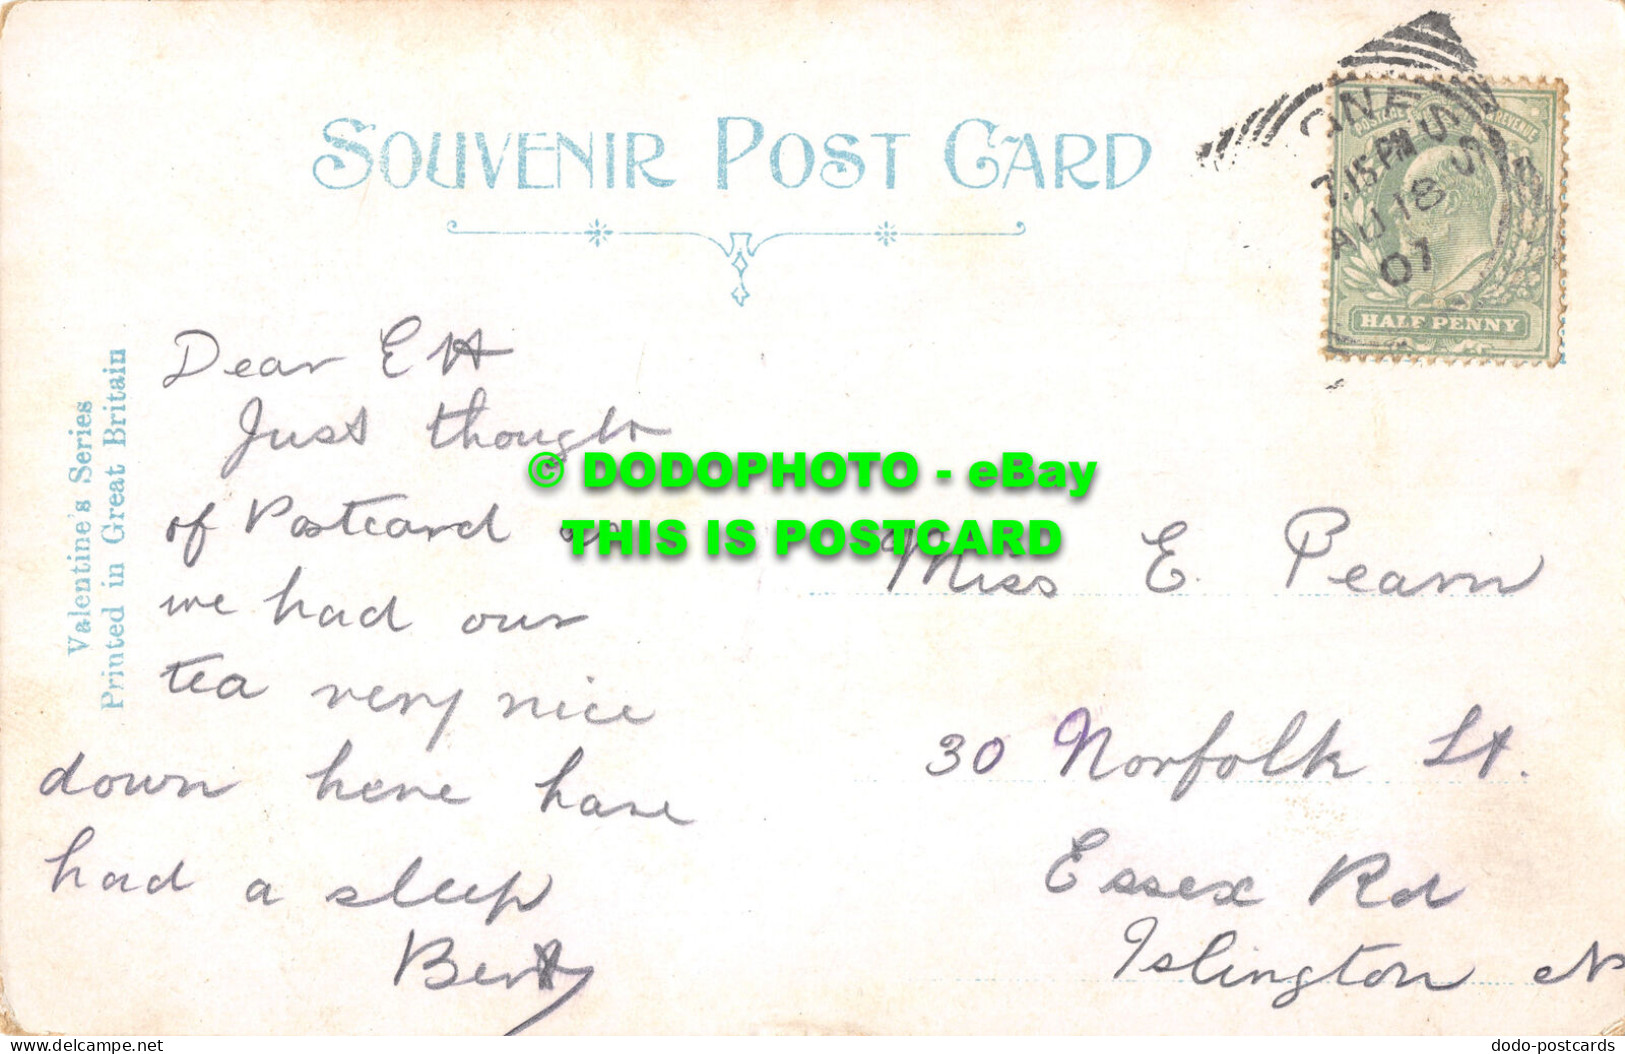 SOUVENIR POST CARD
Valentine's Series
Printed in Great Britain
7.15 PM
AU 18
07
POSTAGE REVENUE
HALF PENNY
Dear E H
Just thought
of Postcard
we had our
tea very nice
down here have
had a sleep
Berty
Miss E. Pearn
30 Norfolk St.
Essex Rd
Islington N
© DODOPHOTO - eBay
THIS IS POSTCARD
delcampe.net
dodo-postcards